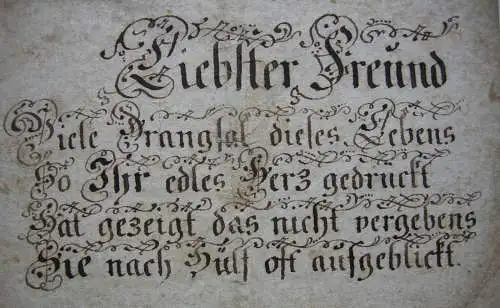 Liebster Freund
Viele Drangsal dieses Lebens
So Ihr edles Herz gedruckt
Hat gezeigt das nicht vergebens
Sie nach Hülf oft aufgeblickt.